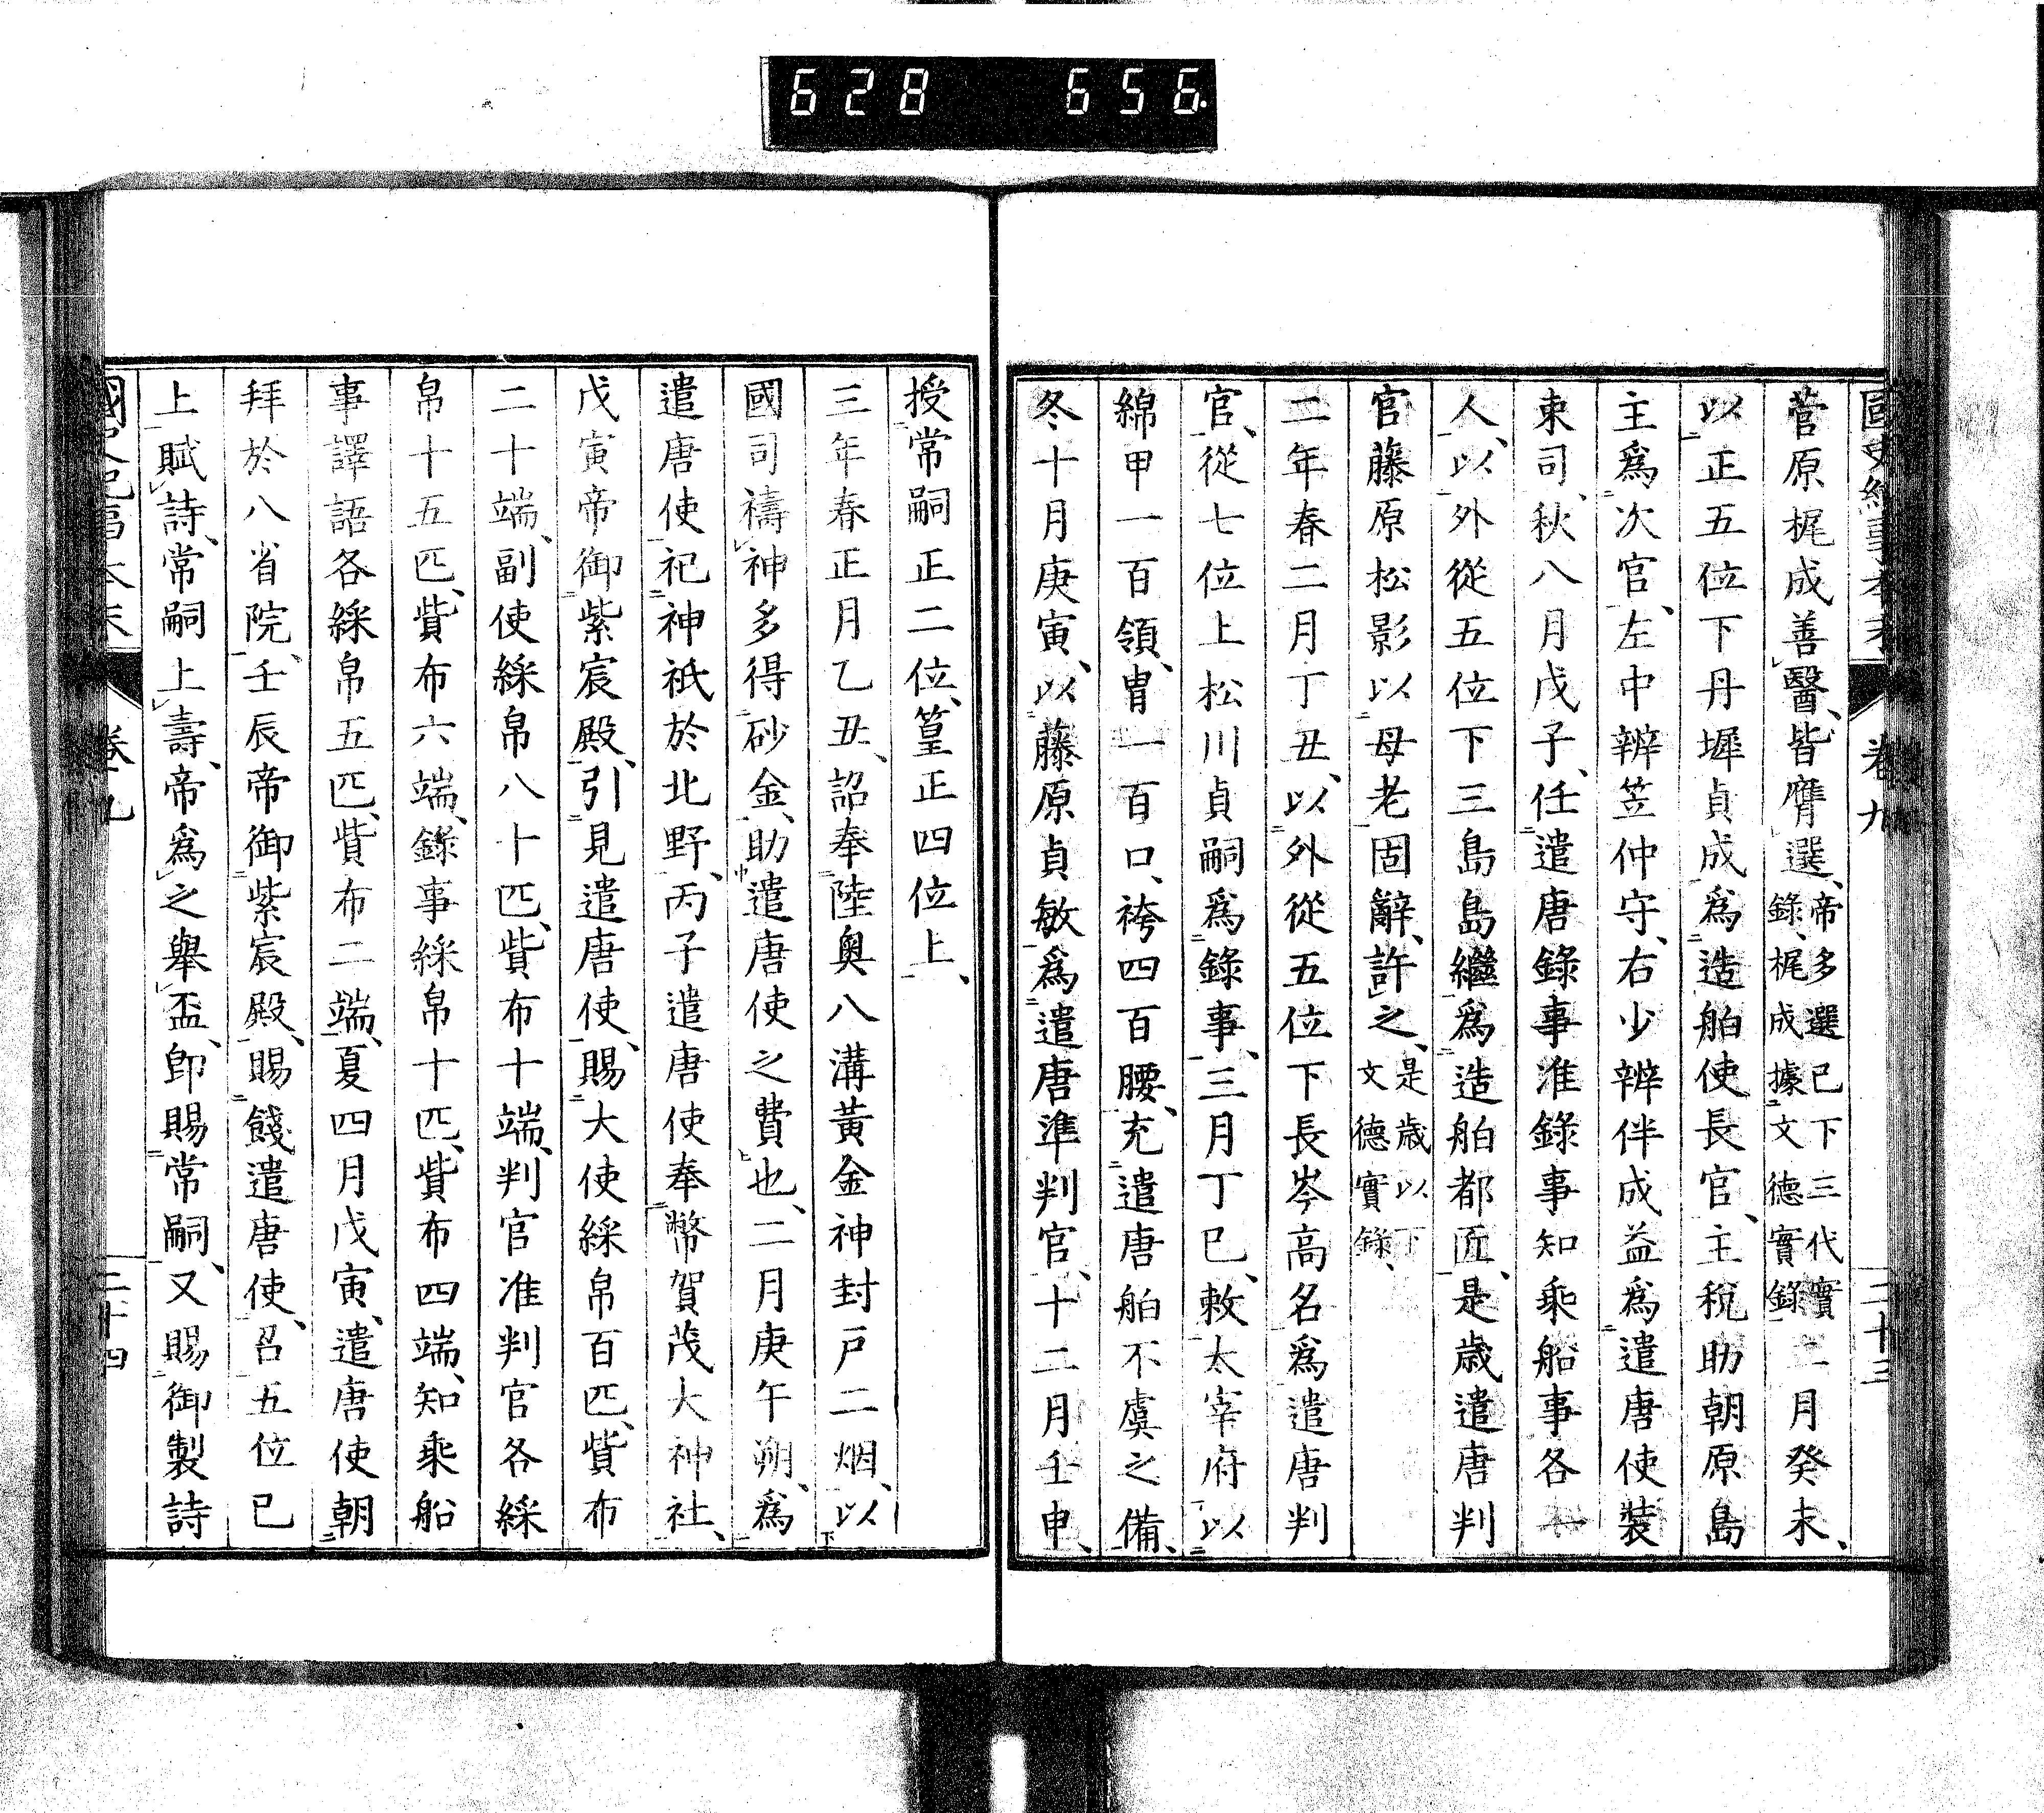 628 656.
國史紀事本末 卷九 二十三
菅原梶成善醫、皆膺選、帝多選已下三代實錄、梶成據文德實錄二月癸未、
以正五位下丹墀貞成爲造舶使長官、主稅助朝原島
主爲次官、左中辨笠仲守、右少辨伴成益爲遣唐使裝
束司、秋八月戊子、任遣唐錄事准錄事知乘船事各一
人、以外從五位下三島島繼爲造舶都匠、是歲遣唐判
官藤原松影以母老固辭、許之、是歲以下文德實錄、
二年春二月丁丑、以外從五位下長岑高名爲遣唐判
官、從七位上松川貞嗣爲錄事、三月丁巳、敕太宰府以
綿甲一百領、冑一百口、袴四百腰、充遣唐舶不虞之備、
冬十月庚寅、以藤原貞敏爲遣唐準判官、十二月壬申、
授常嗣正二位、篁正四位上、
三年春正月乙丑、詔奉陸奧八溝黃金神封戶二烟、以
國司禱神多得砂金、助遣唐使之費也、二月庚午朔、爲
遣唐使祀神祇於北野、丙子遣唐使奉幣賀茂大神社、
戊寅帝御紫宸殿、引見遣唐使、賜大使綵帛百匹、貲布
二十端、副使綵帛八十匹、貲布十端、判官准判官各綵
帛十五匹、貲布六端、錄事綵帛十匹、貲布四端、知乘船
事譯語各綵帛五匹、貲布二端、夏四月戊寅、遣唐使朝
拜於八省院、壬辰帝御紫宸殿、賜餞遣唐使、召五位已
上賦詩、常嗣上壽、帝爲之舉盃、卽賜常嗣、又賜御製詩
國史紀事本末 卷九 二十四